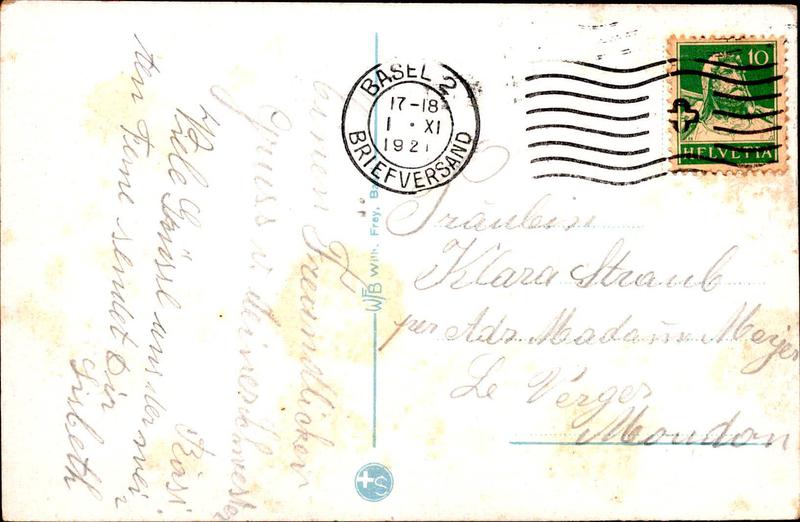 BASEL 2
17-18
1 · XI
1921
BRIEFVERSAND
10
HELVETIA
Fräulein
Klara Straub
per Adr. Madame Meyer
Le Verger
Moudon
W/FB Wilh. Frey, Ba
Freundlichen
Gruss v. deiner Schwester
Rösi
Viele Grüsse aus der
ten Ferne sendet dir
Lisbeth
S